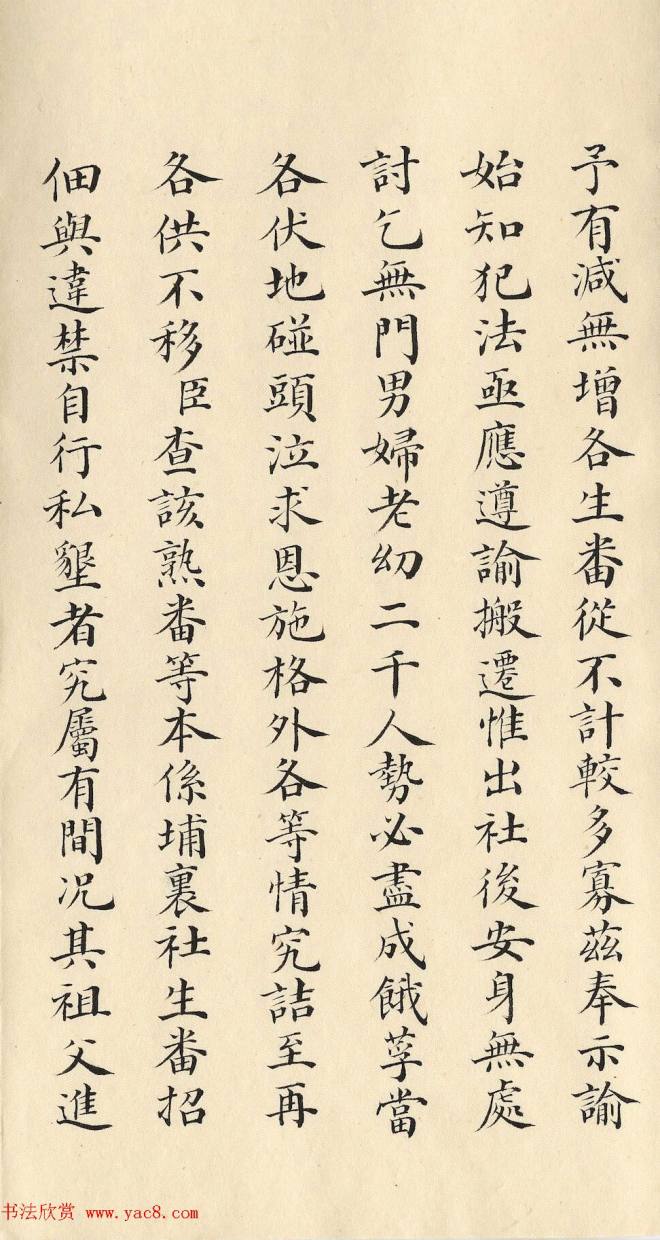 予有減無增各生番從不計較多寡茲奉示諭
始知犯法亟應遵諭搬遷惟出社後安身無處
討乞無門男婦老幼二千人勢必盡成餓莩當
各伏地碰頭泣求恩施格外各等情究詰至再
各供不移臣查該熟番等本係埔裏社生番招
佃與違禁自行私墾者究屬有間况其祖父進
书法欣赏 www.yac8.com